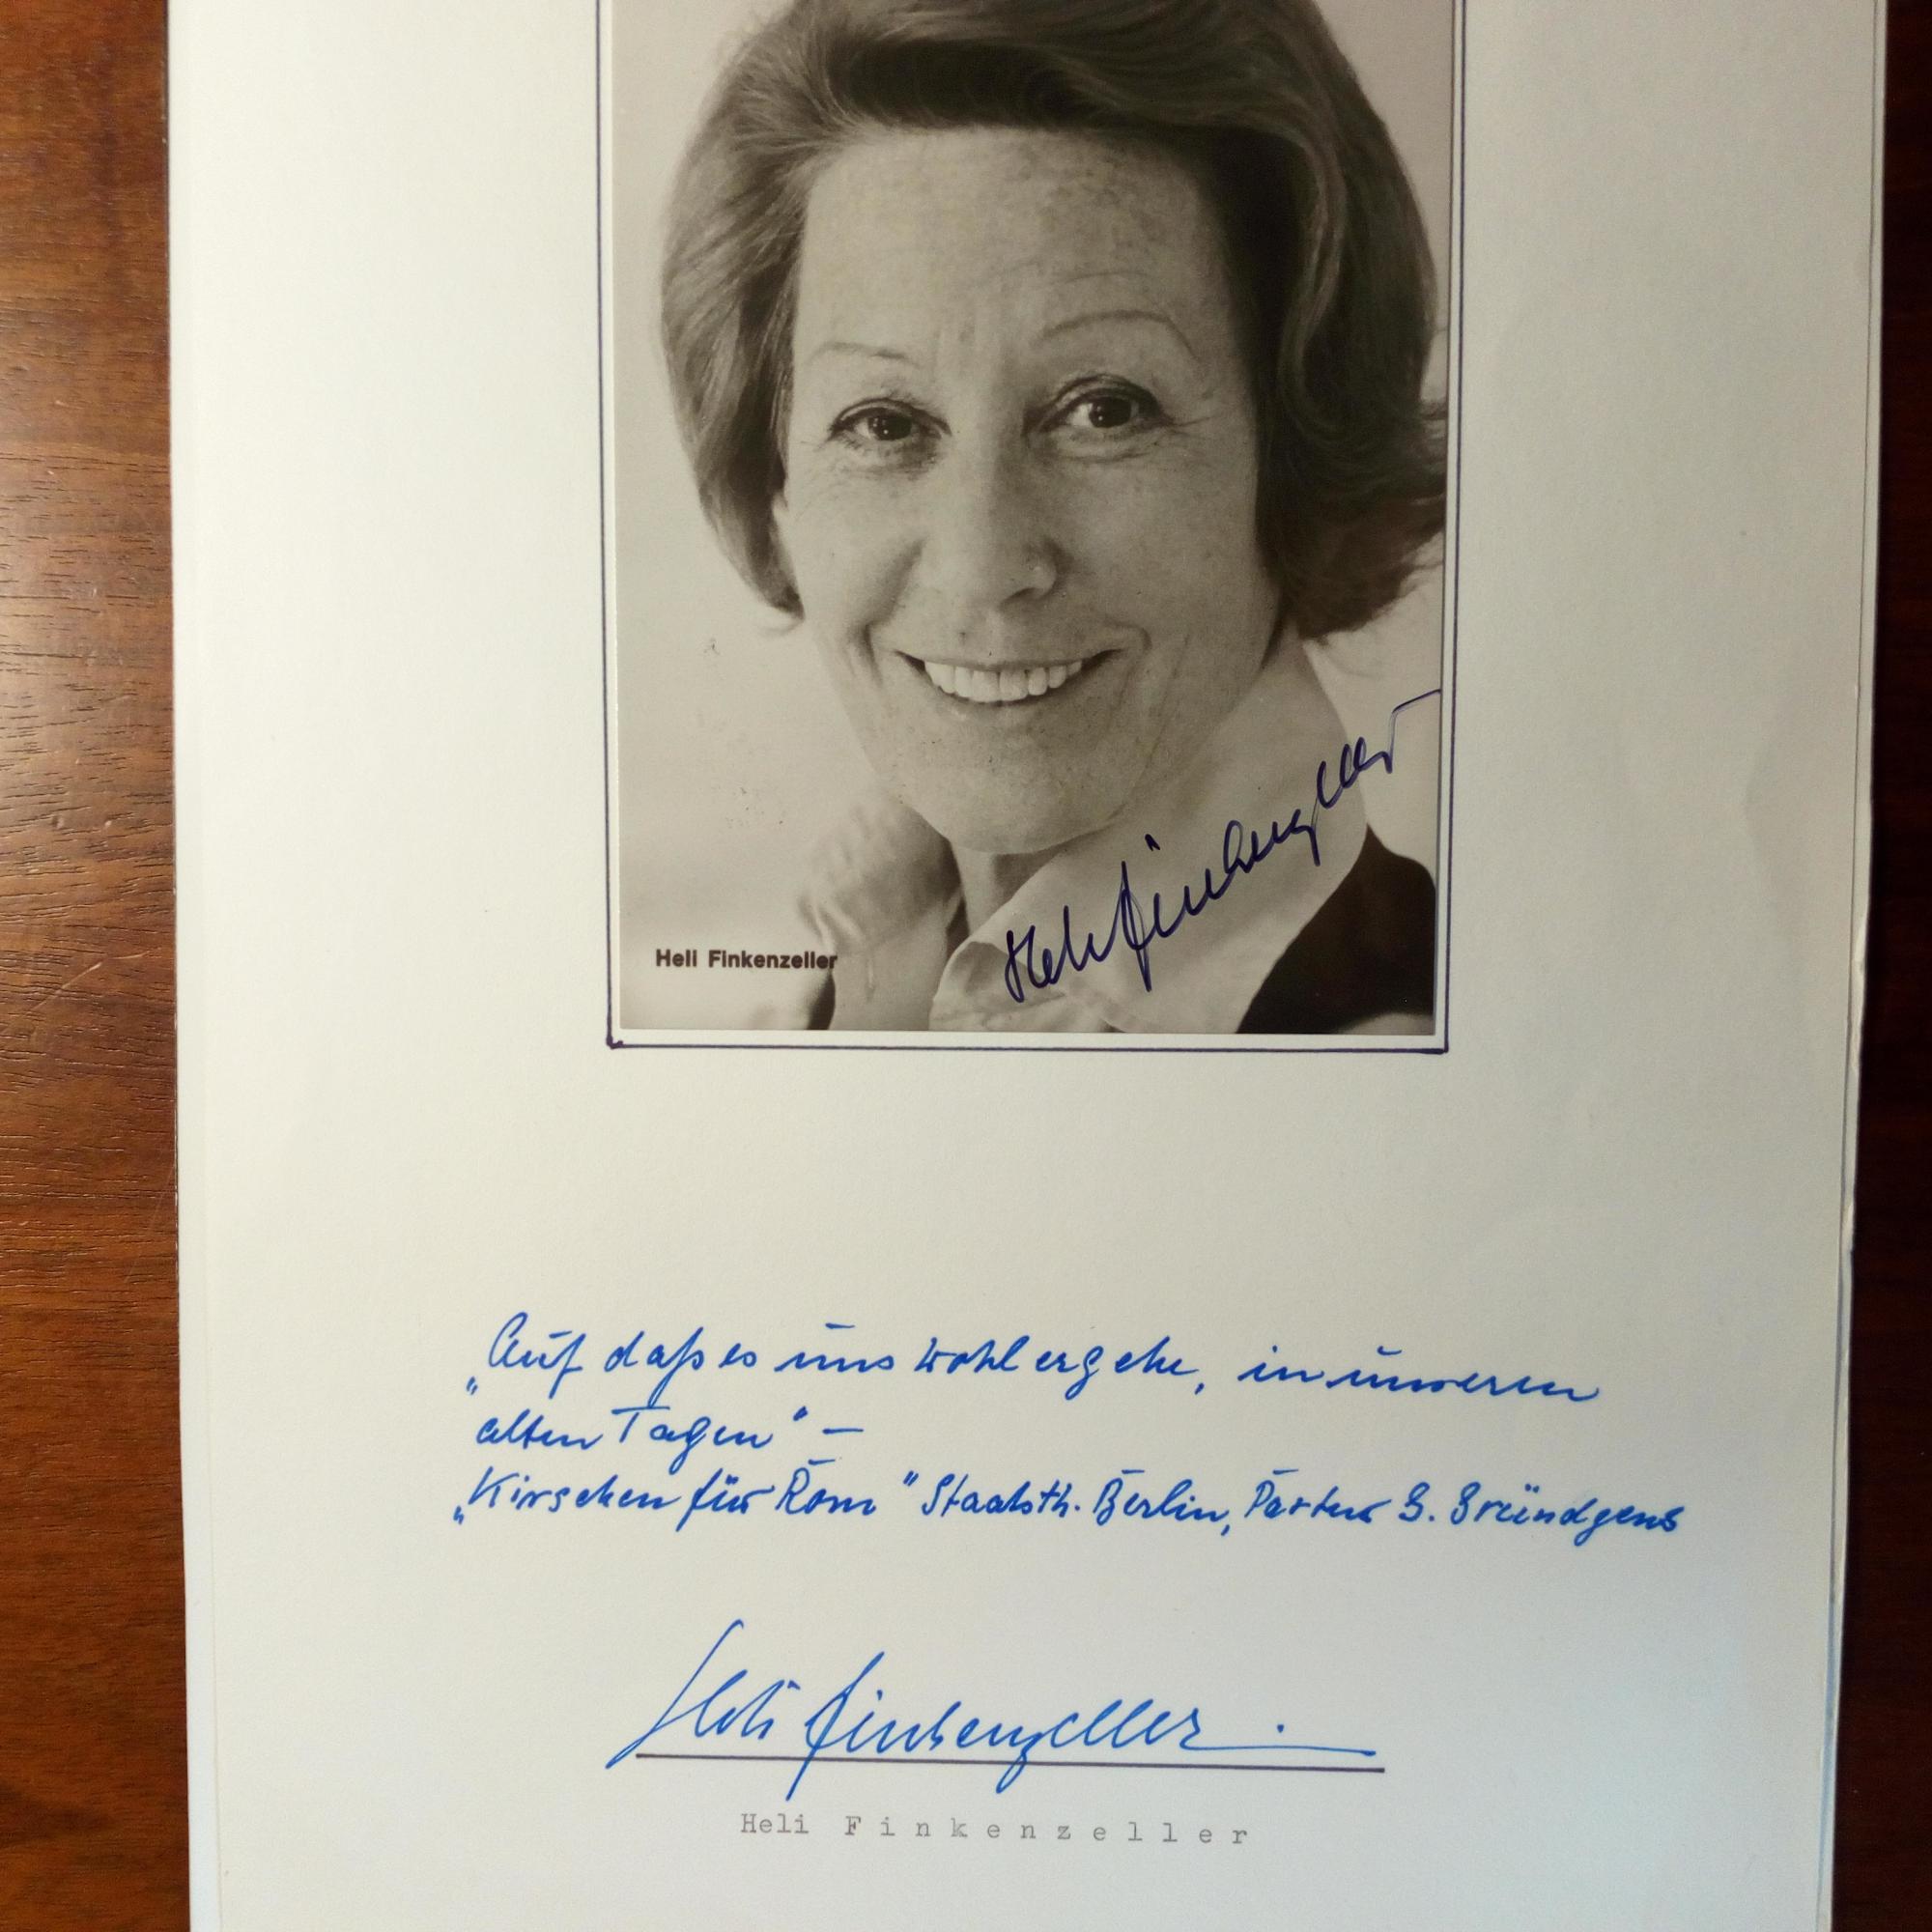 Heli Finkenzeller
Heli Finkenzeller
„Auf daß es uns wohl ergehe, in unseren
alten Tagen" –
„Kirschen für Rom" Staatsth. Berlin, Partner G. Gründgens
Heli Finkenzeller.
Heli Finkenzeller